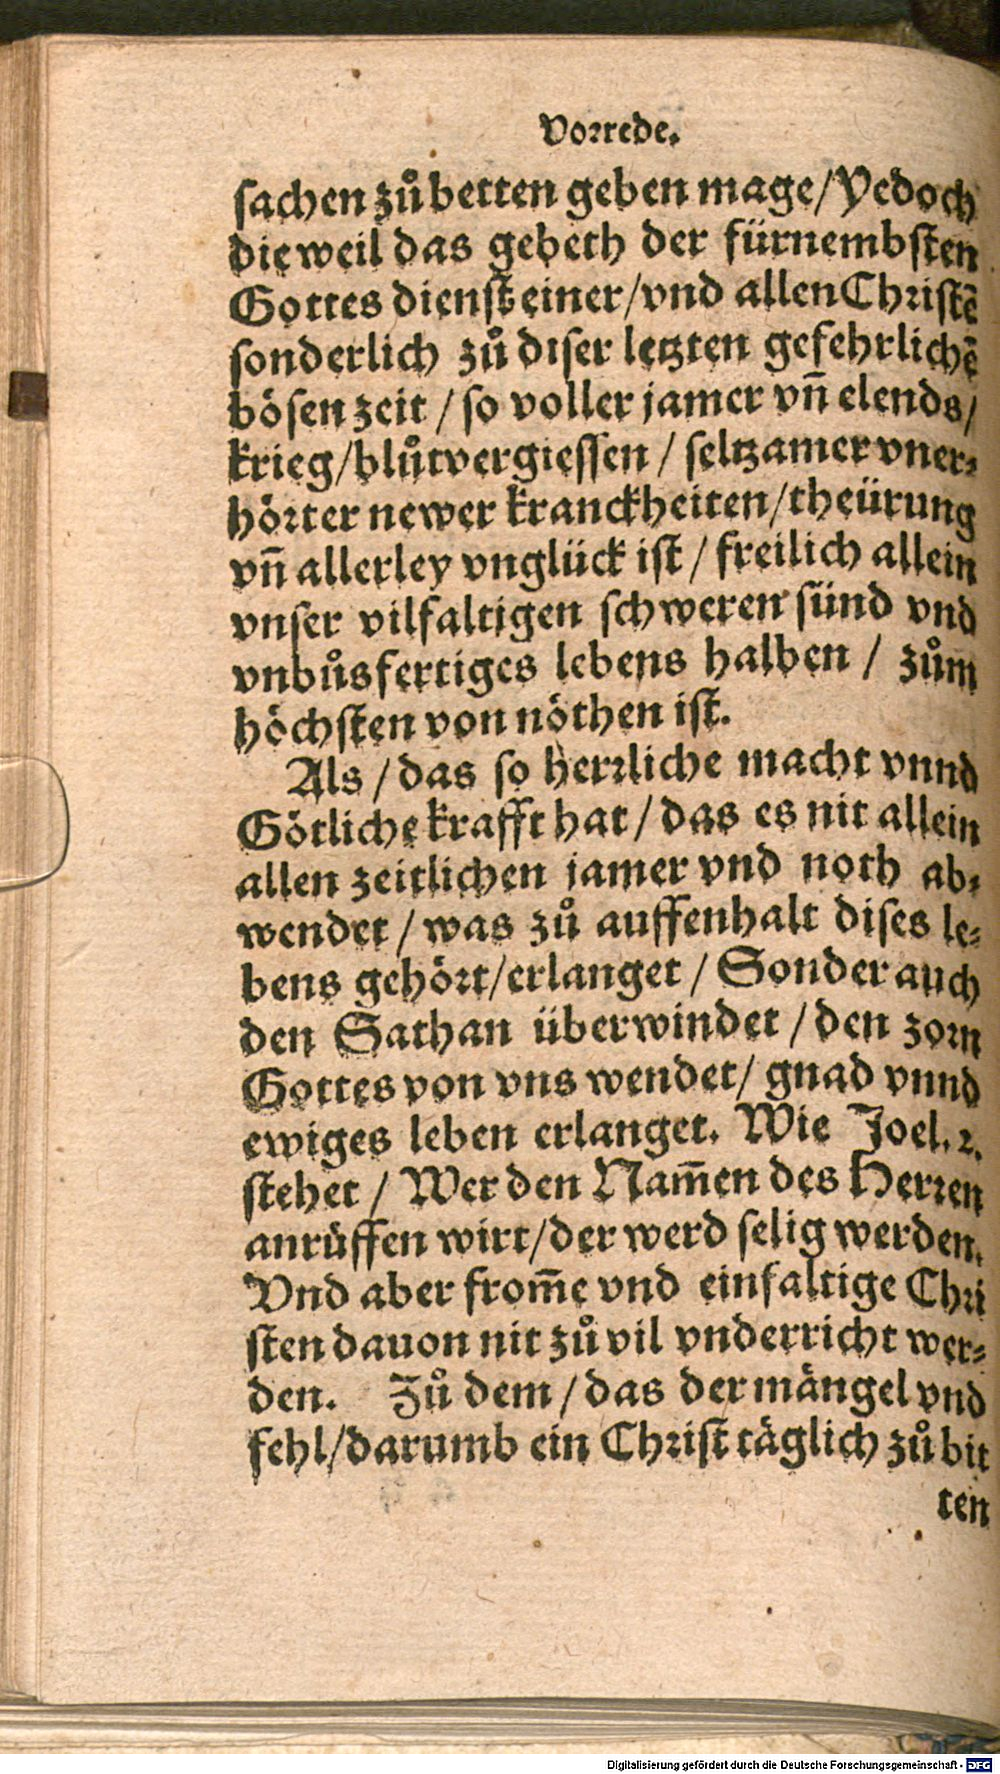 Vorrede.
sachen zů betten geben mage/ Yedoch
die weil das gebeth der fürnembsten
Gottes dienst einer/ vnd allen Christē
sonderlich zů diser letzten gefehrlichē
bösen zeit / so voller jamer vn̄ elends/
krieg/ blůtvergiessen / seltzamer vner-
hörter newer kranckheiten/ theürung
vn̄ allerley vnglück ist / freilich allein
vnser vilfaltigen schweren sünd vnd
vnbůsfertiges lebens halben / zům
höchsten von nöthen ist.
Als / das so herrliche macht vnnd
Götliche krafft hat / das es nit allein
allen zeitlichen jamer vnd noth ab-
wendet / was zů auffenhalt dises le-
bens gehört/ erlanget / Sonder auch
den Sathan überwindet / den zorn
Gottes von vns wendet/ gnad vnnd
ewiges leben erlanget. Wie Joel. 2.
stehet / Wer den Nam̄en des Herren
anrüffen wirt/ der werd selig werden.
Vnd aber from̄e vnd einfaltige Chri
sten dauon nit zů vil vnderricht wer-
den. Zů dem / das der mängel vnd
fehl/ darumb ein Christ täglich zů bit
ten
Digitalisierung gefördert durch die Deutsche Forschungsgemeinschaft - DFG